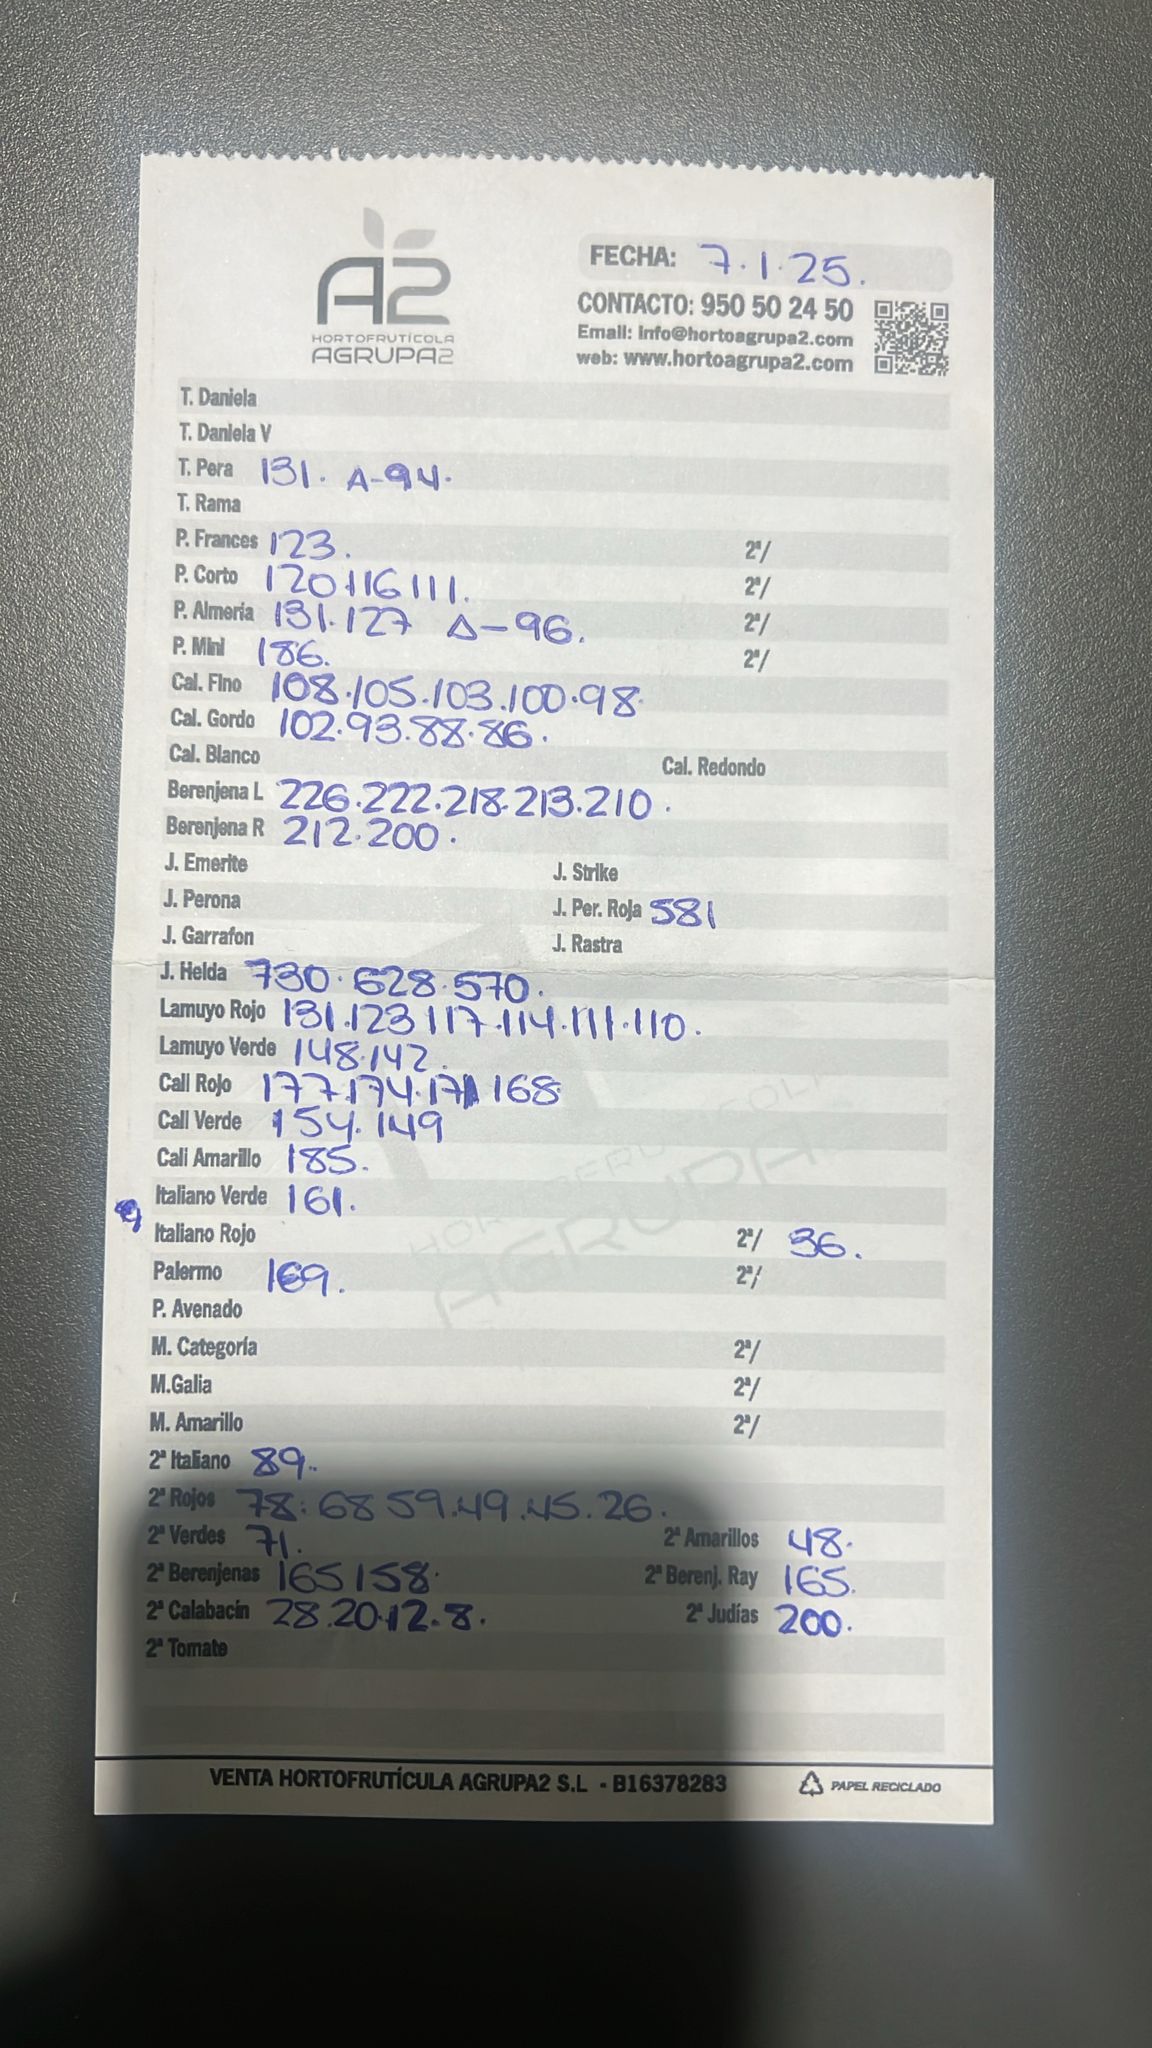 A2
HORTOFRUTÍCOLA
AGRUPA2
FECHA: 7.1.25.
CONTACTO: 950 50 24 50
Email: info@hortoagrupa2.com
web: www.hortoagrupa2.com
T. Daniela
T. Daniela V
T. Pera 131. A-94.
T. Rama
P. Frances 123. 2ª/
P. Corto 120.116 111. 2ª/
P. Almería 131.127 A-96. 2ª/
P. Mini 186. 2ª/
Cal. Fino 108.105.103.100.98.
Cal. Gordo 102.93.88.86.
Cal. Blanco Cal. Redondo
Berenjena L 226.222.218.213.210.
Berenjena R 212.200.
J. Emerite J. Strike
J. Perona J. Per. Roja 581
J. Garrafon J. Rastra
J. Helda 730.628.570.
Lamuyo Rojo 131.123 117.114.111.110.
Lamuyo Verde 148.142.
Cali Rojo 177.174.171 168.
Cali Verde 154.149
Cali Amarillo 185.
Italiano Verde 161.
Italiano Rojo 2ª/ 36.
Palermo 169. 2ª/
P. Avenado
M. Categoría 2ª/
M.Galia 2ª/
M. Amarillo 2ª/
2ª Italiano 89.
2ª Rojos 78.68 59.49.45.26.
2ª Verdes 71. 2ª Amarillos 48.
2ª Berenjenas 165 158. 2ª Berenj. Ray 165.
2ª Calabacín 28.20.12.8. 2ª Judías 200.
2ª Tomate
VENTA HORTOFRUTÍCULA AGRUPA2 S.L - B16378283 PAPEL RECICLADO